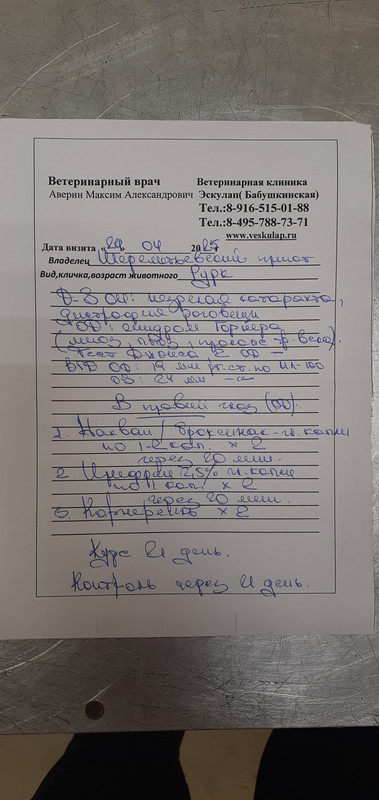 Ветеринарный врач
Аверин Максим Александрович
Ветеринарная клиника
Эскулап( Бабушкинская)
Тел.:8-916-515-01-88
Тел.:8-495-788-73-71
www.veskulap.ru
Дата визита «29» 04 2025 г
Владелец Шереметьевский приют
Вид,кличка,возраст животного
D-S ОU: незрелая катаракта,
дистрофия роговицы
OD: синдром Горнера
(миоз, птоз, пролапс тр. века).
Тест Джонса 2 OD –
ВГД OD: 19 мм рт.ст. по
OS: 24 мм –"–
В правый глаз (OD).
1. Накван / Броксинак - гл. капли
по 1-2 кап. х 2
через 20 мин.
2. 2,5% гл. капли
по 1 кап. х 2
через 20 мин.
3. Корнерегель х 2
Курс 21 день.
Контроль через 21 день.